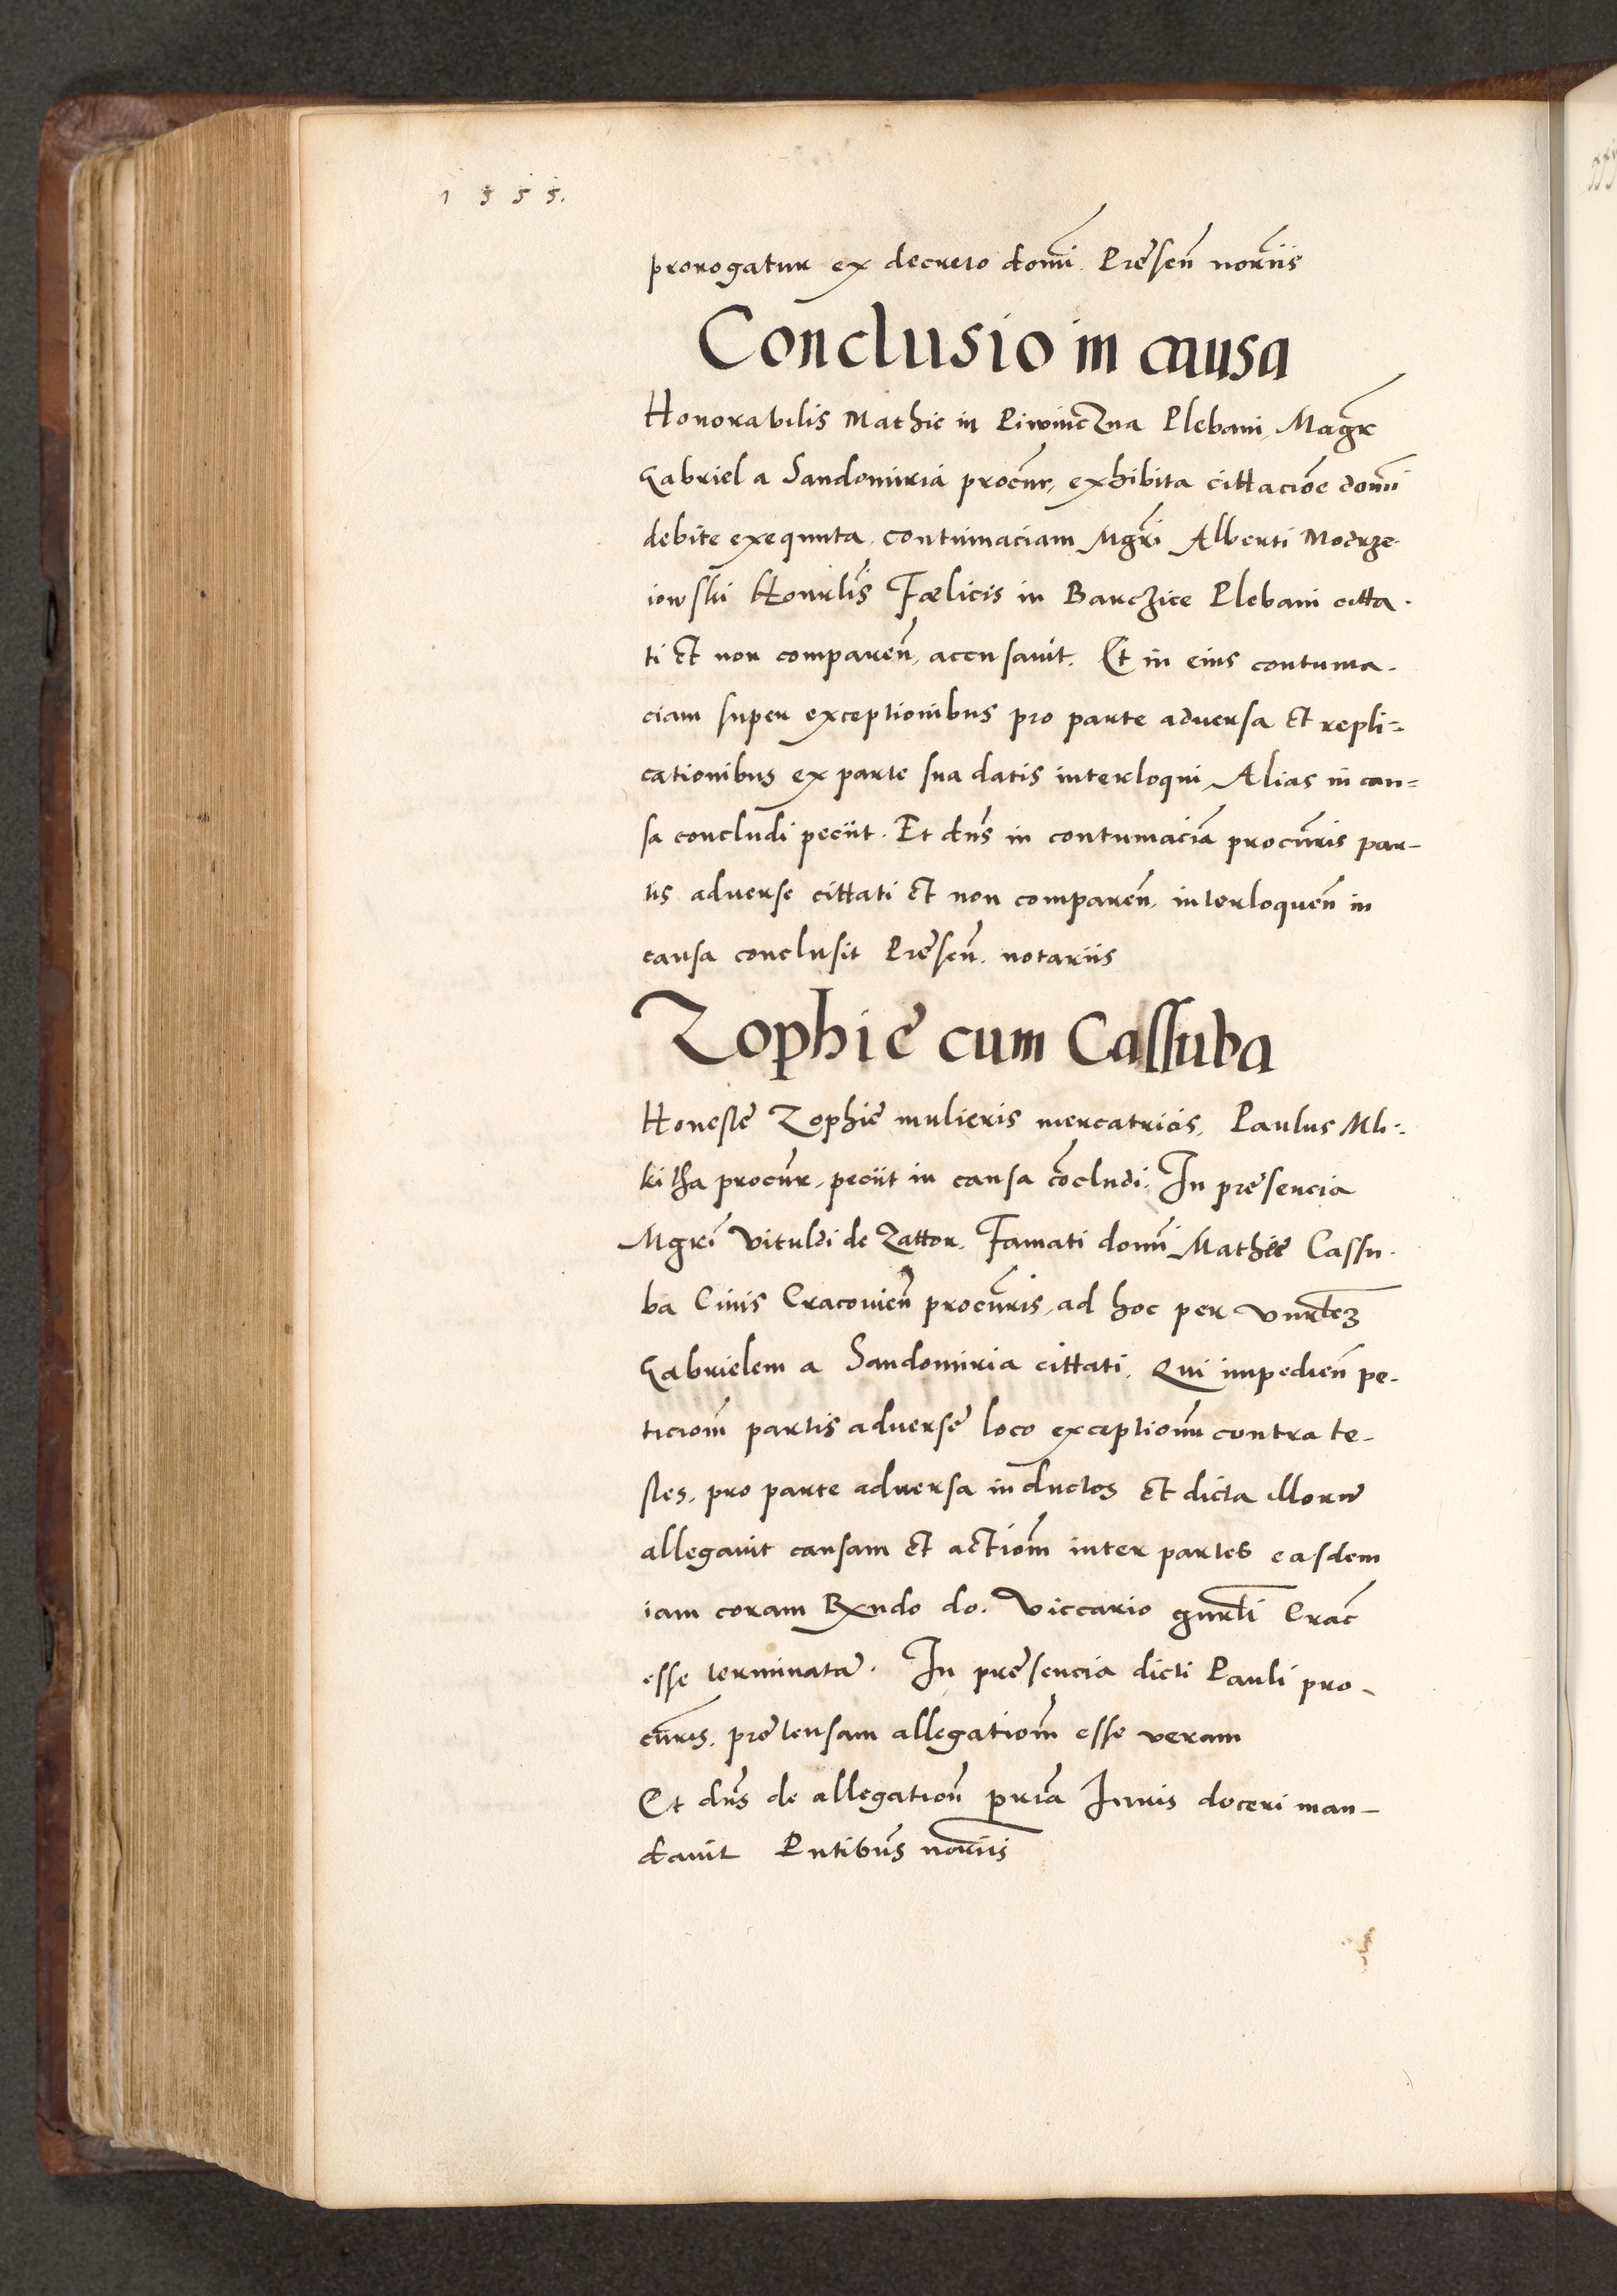 1 5 5 5.
prorogatur ex decreto domi. Presen noriis
Conclusio in causa
Honorabilis Mathie in Piwniczna Plebani, Magr
Gabriel a Sandomiria procur, exhibita cittacioe domi
debite exequuta, contumaciam Mgri Alberti Modrze
iowski Honrlis Fælicis in Barczice Plebani citta-
ti et non comparen, accusavit. Et in eius contuma-
ciam super exceptionibus pro parte adversa et repli=
cationibus ex parte sua datis interloqui, Alias in cau=
sa concludi peciit. Et dns in contumacia procuris par-
tis adverse cittati et non comparen, interloquen in
causa conclusit Presen. notariis
Zophie cum Cassuba
Honeste Zophie mulieris mercatricis, Paulus Mi-
kitha procur, peciit in causa cocludi. In presencia
Mgri Vituldi de Zattor. Famati domi Mathie Cassu-
ba Civis Cracovien procuris, ad hoc per
Gabrielem a Sandomiria cittati. Qui impedien pe-
ticiom partis adverse loco exceptionu contra te-
stes, pro parte adversa inductos et dicta illoru
allegavit causam et actiom inter partes easdem
iam coram Rxndo do. Viccario gnrli Crac
esse terminata. In presencia dicti Pauli pro-
curis, pretensam allegatiom esse veram
Et dns de allegation pria Iuris doceri man-
davit Pntibus nariis